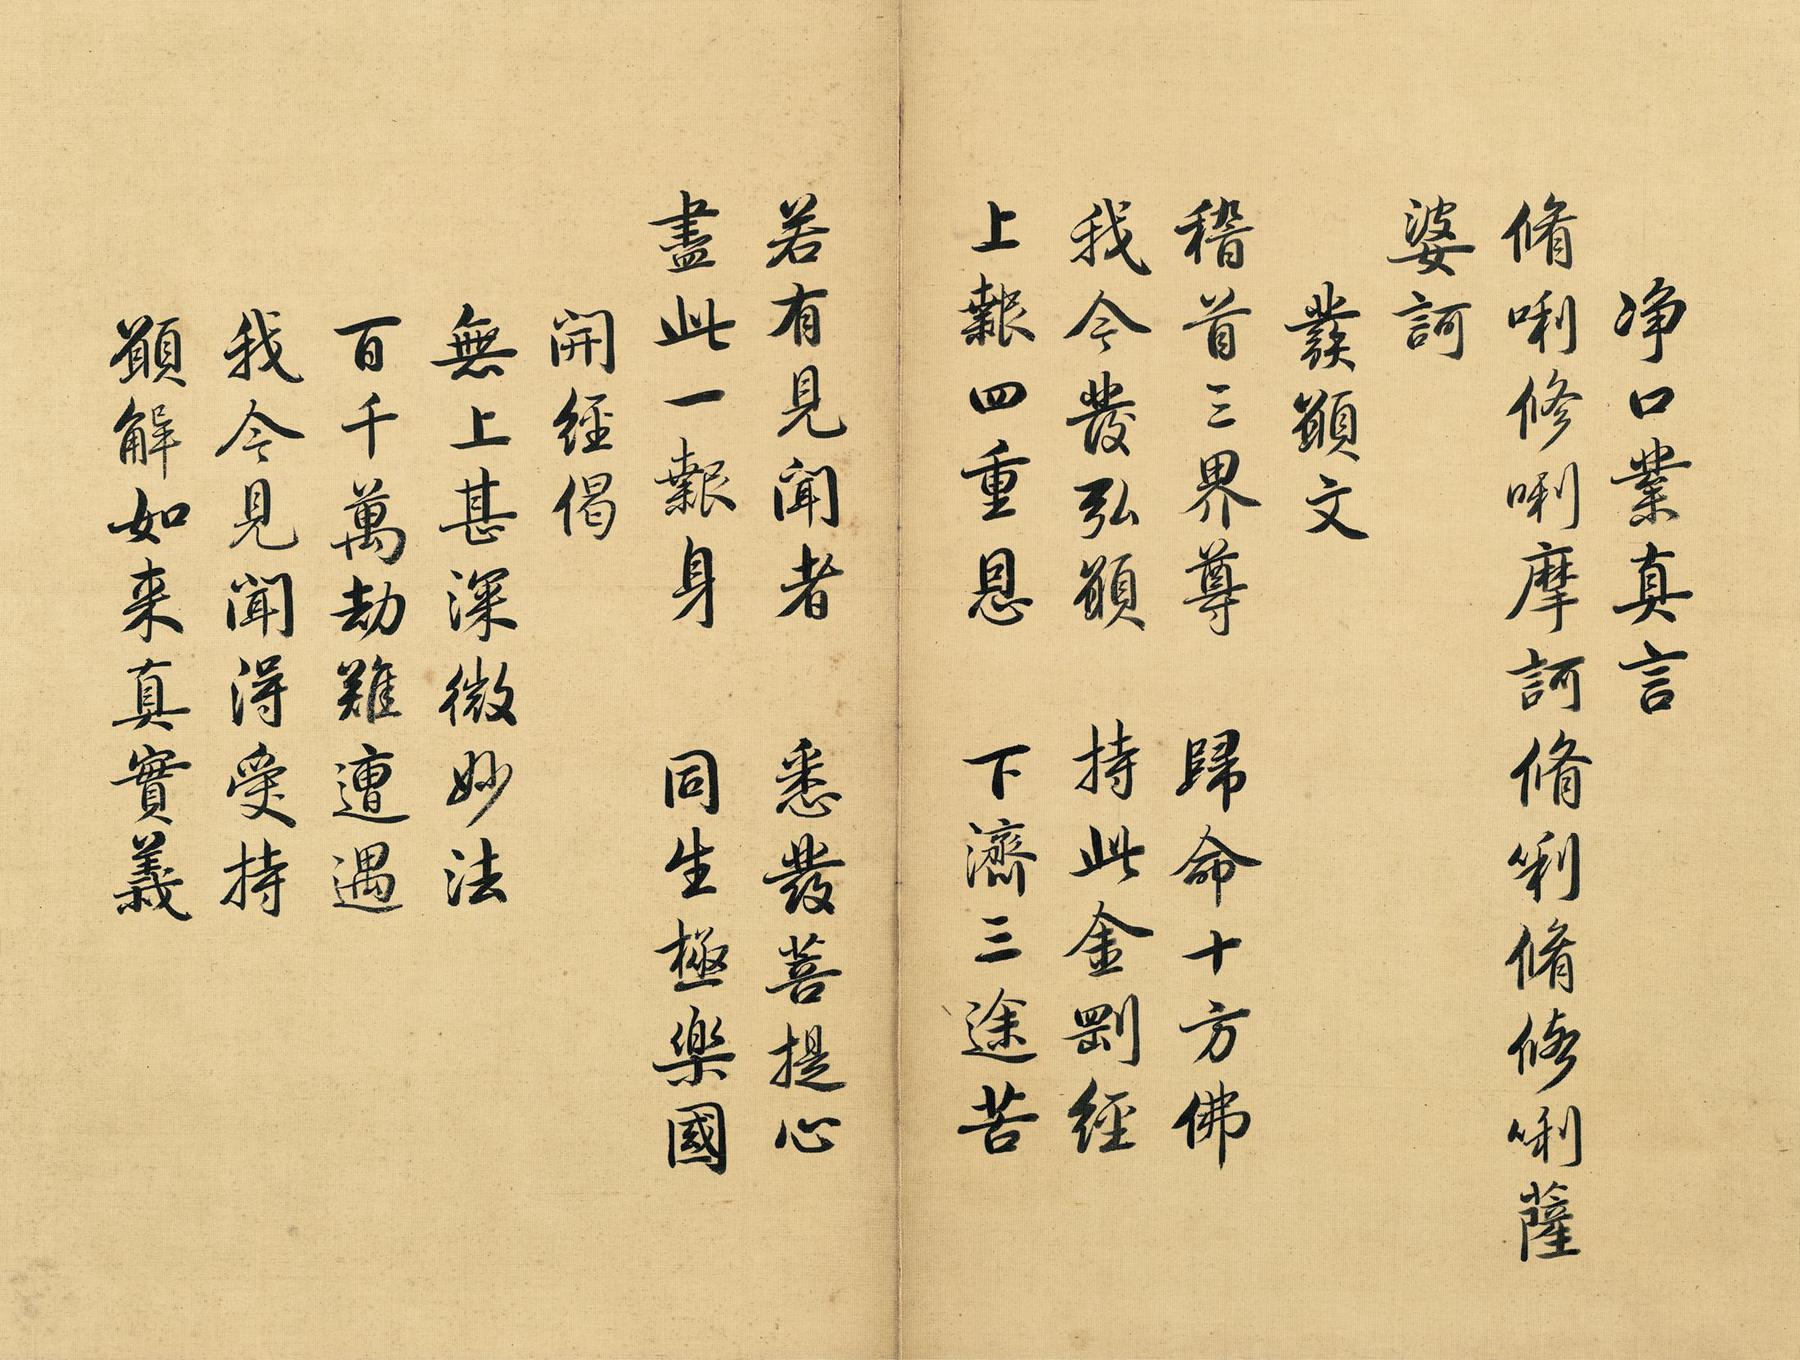 淨口業真言
脩唎修唎摩訶脩利脩修唎薩
婆訶
發願文
稽首三界尊　歸命十方佛
我今發弘願　持此金剛經
上報四重恩　下濟三途苦
若有見聞者　悉發菩提心
盡此一報身　同生極樂國
開經偈
無上甚深微妙法
百千萬劫難遭遇
我今見聞得受持
願解如来真實義